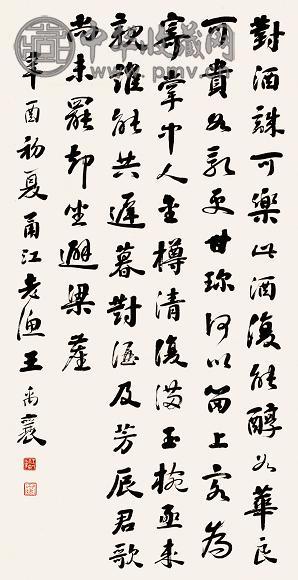 中华收藏网
www.pmv.cn
對酒誠可樂此酒復能醇如華良
可貴如乳更甘珍何以留上客為
寄掌中人金樽清復滿玉椀亟来
親誰能共遲暮對酒及芳辰君歌
尚未罷却坐避梁塵
辛酉初夏甬江老漁王禹襄